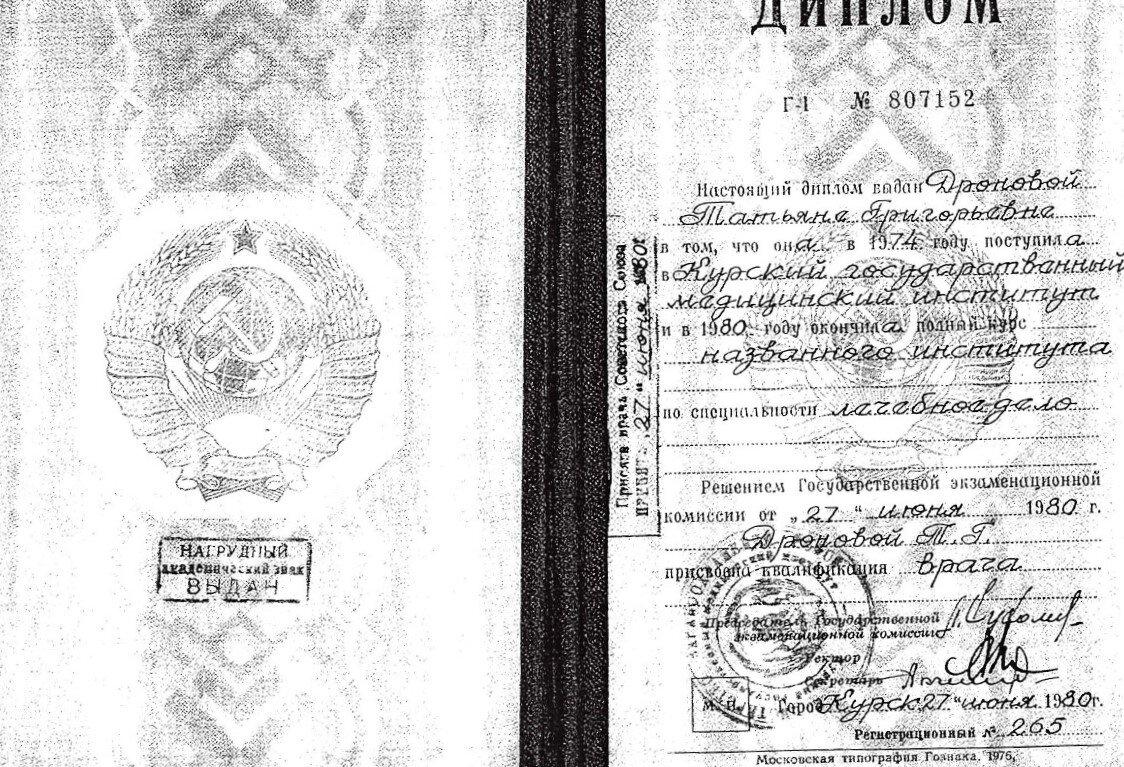 НАГРУДНЫЙ
академический знак
ВЫДАН
ДИПЛОМ
Г-I № 807152
Настоящий диплом выдан Дроновой
Татьяне Григорьевне
в том, что она в 1974 году поступила
в Курский государственный
медицинский институт
и в 1980 году окончила полный курс
названного института
по специальности лечебное дело
Решением Государственной экзаменационной
комиссии от „27“ июня 1980 г.
Дроновой Т. Г.
присвоена квалификация врача
Председатель Государственной
экзаменационной комиссии
Ректор
Секретарь
М. П. Город Курск „27“ июня 1980 г.
Регистрационный № 265
Московская типография Гознака. 1976.
Присяга врача Советского Союза
„27“ июня 1980